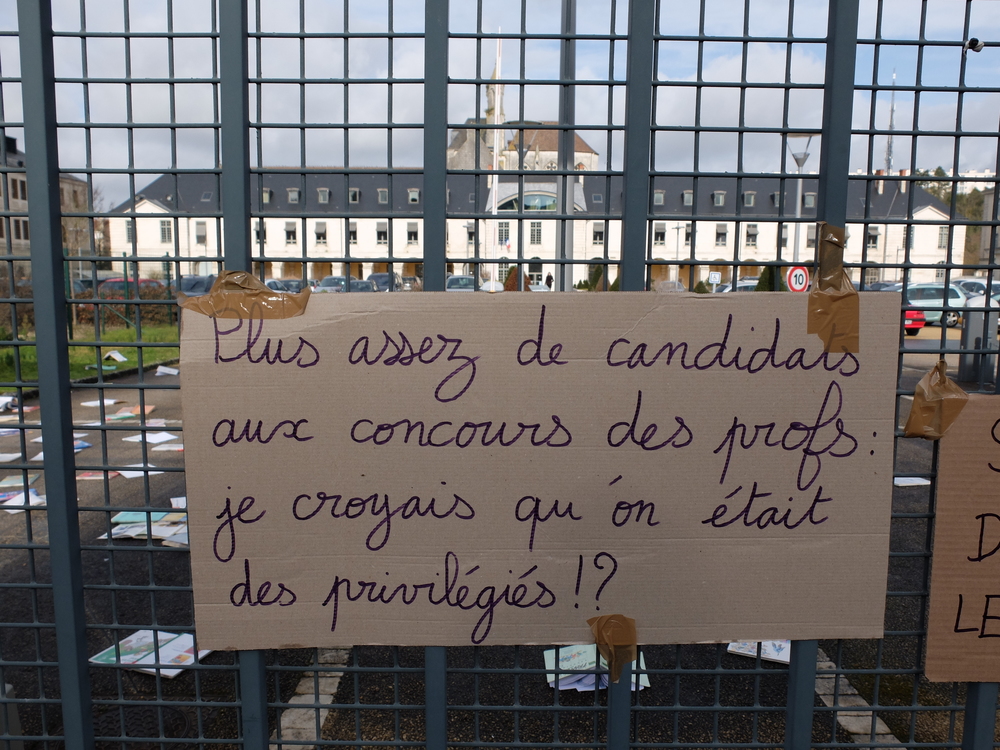 Plus assez de candidats
aux concours des profs :
je croyais qu'on était
des privilégiés !?
10
D
LE